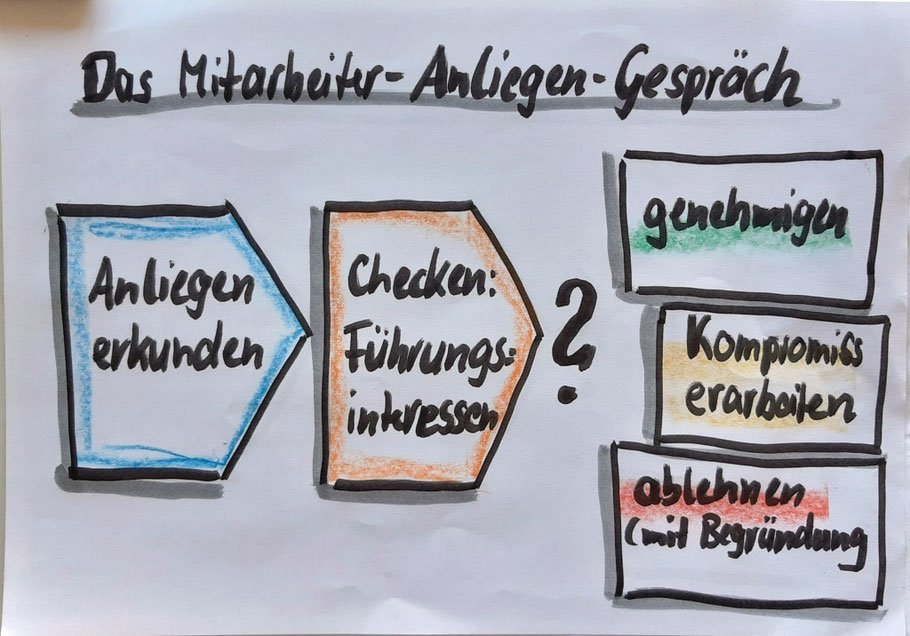 Das Mitarbeiter-Anliegen-Gespräch
Anliegen
erkunden
Checken:
Führungs-
interessen
?
genehmigen
Kompromiss
erarbeiten
ablehnen
(mit Begründung